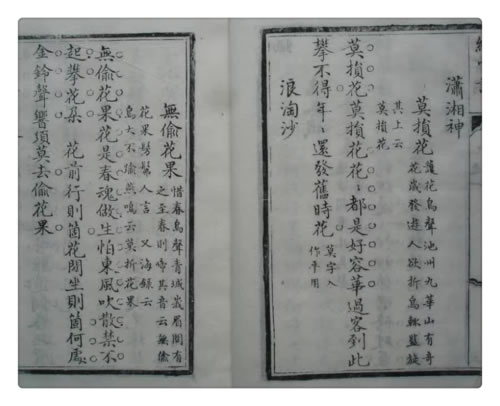 瀟湘神
莫損花 護花鳥聲池州九華山有奇
花歲發遊人欲折鳥輒盤旋
其上云
莫損花
莫損花莫損花花〻都是好容華過客到此
攀不得年〻還發舊時花 莫字入
作平用
浪淘沙
無偷花果 惜春鳥聲青城峩眉間有
之至春則啼其音云無偷
花果髣髴人言 又海錄云
鳥大不踰燕鳴云莫折花果
無偷花果花是春魂做生怕東風吹散禁不
起攀花朵 花前行則箇花間坐則箇何處
金鈴聲響項莫去偷花果